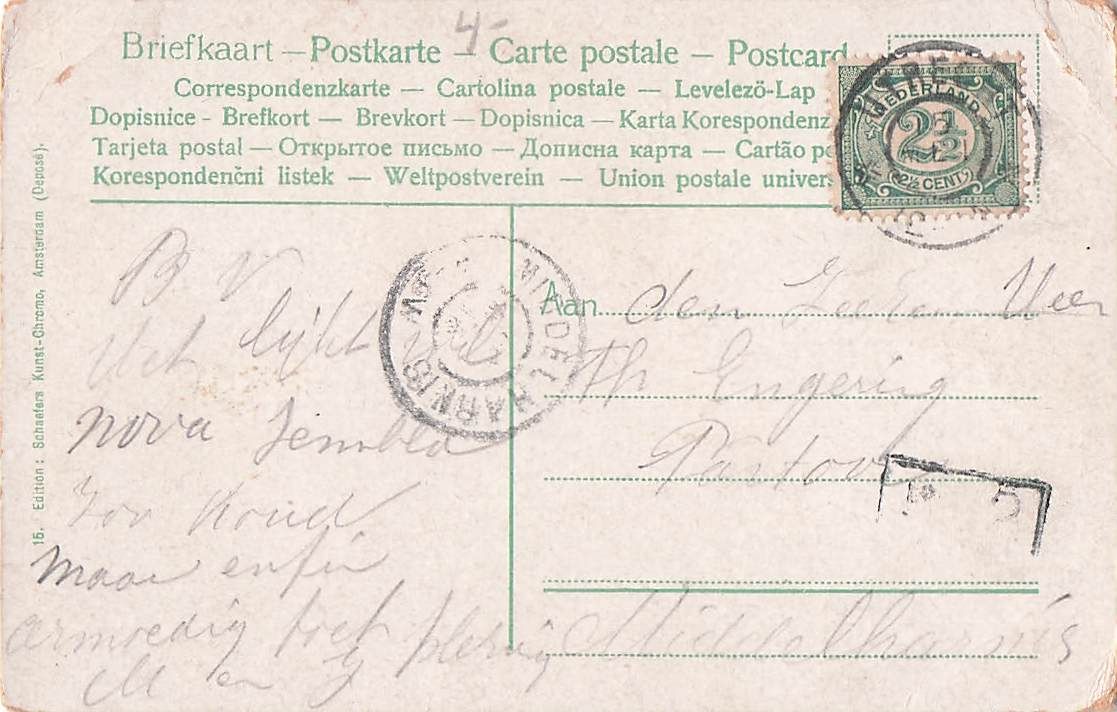 4-
Briefkaart — Postkarte — Carte postale — Postcard
Correspondenzkarte — Cartolina postale — Levelező-Lap
Dopisnice - Brefkort — Brevkort — Dopisnica — Karta Korespondenz
Tarjeta postal — Открытое письмо — Дописна карта — Cartão po
Korespondenčni listek — Weltpostverein — Union postale univers
NEDERLAND
2½
(2½ CENT)
15. Edition: Schaefers Kunst-Chromo, Amsterdam (Deposé).
MIDDELHARNIS
B V
Het lijkt wel
nova Zembla
Zoo koud
maar enfin
armoedig toch plezig
M en J
Aan den Heer
Th Engering
Pastoor
Middelharnis